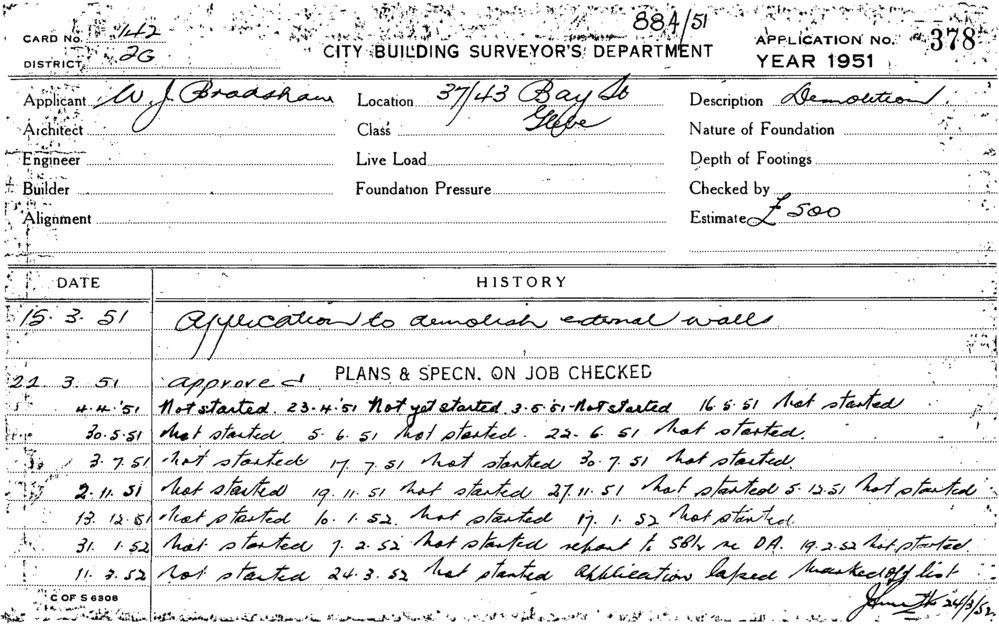 884/51
CARD No. 142
CITY BUILDING SURVEYOR'S DEPARTMENT
APPLICATION No. 378
DISTRICT 2G
YEAR 1951
Applicant W. J. Bradshaw Location 37/43 Bay St Description Demolition
Architect Class Glebe Nature of Foundation
Engineer Live Load Depth of Footings
Builder Foundation Pressure Checked by
Alignment Estimate £500
DATE HISTORY
15. 3. 51 Application to demolish external walls
22. 3. 51 approved PLANS & SPECN. ON JOB CHECKED
4.4.'51 Not started. 23.4.'51 Not yet started. 3.5.'51 Not started 16.5.51 Not started
30.5.51 Not started. 5.6.51 Not started. 22.6.51 Not started.
3.7.51 Not started 17.7.51 Not started 30.7.51 Not started.
2.11.51 Not started 19.11.51 Not started 27.11.51 Not started 5.12.51 Not started
13.12.51 Not started 10.1.52. Not started 17.1.52 Not started.
31.1.52 Not started 7.2.52 Not started report to re DA. 19.2.52 Not started.
11.3.52 Not started 24.3.52 Not started Application lapsed marked off list
C OF S 6308
24/3/52